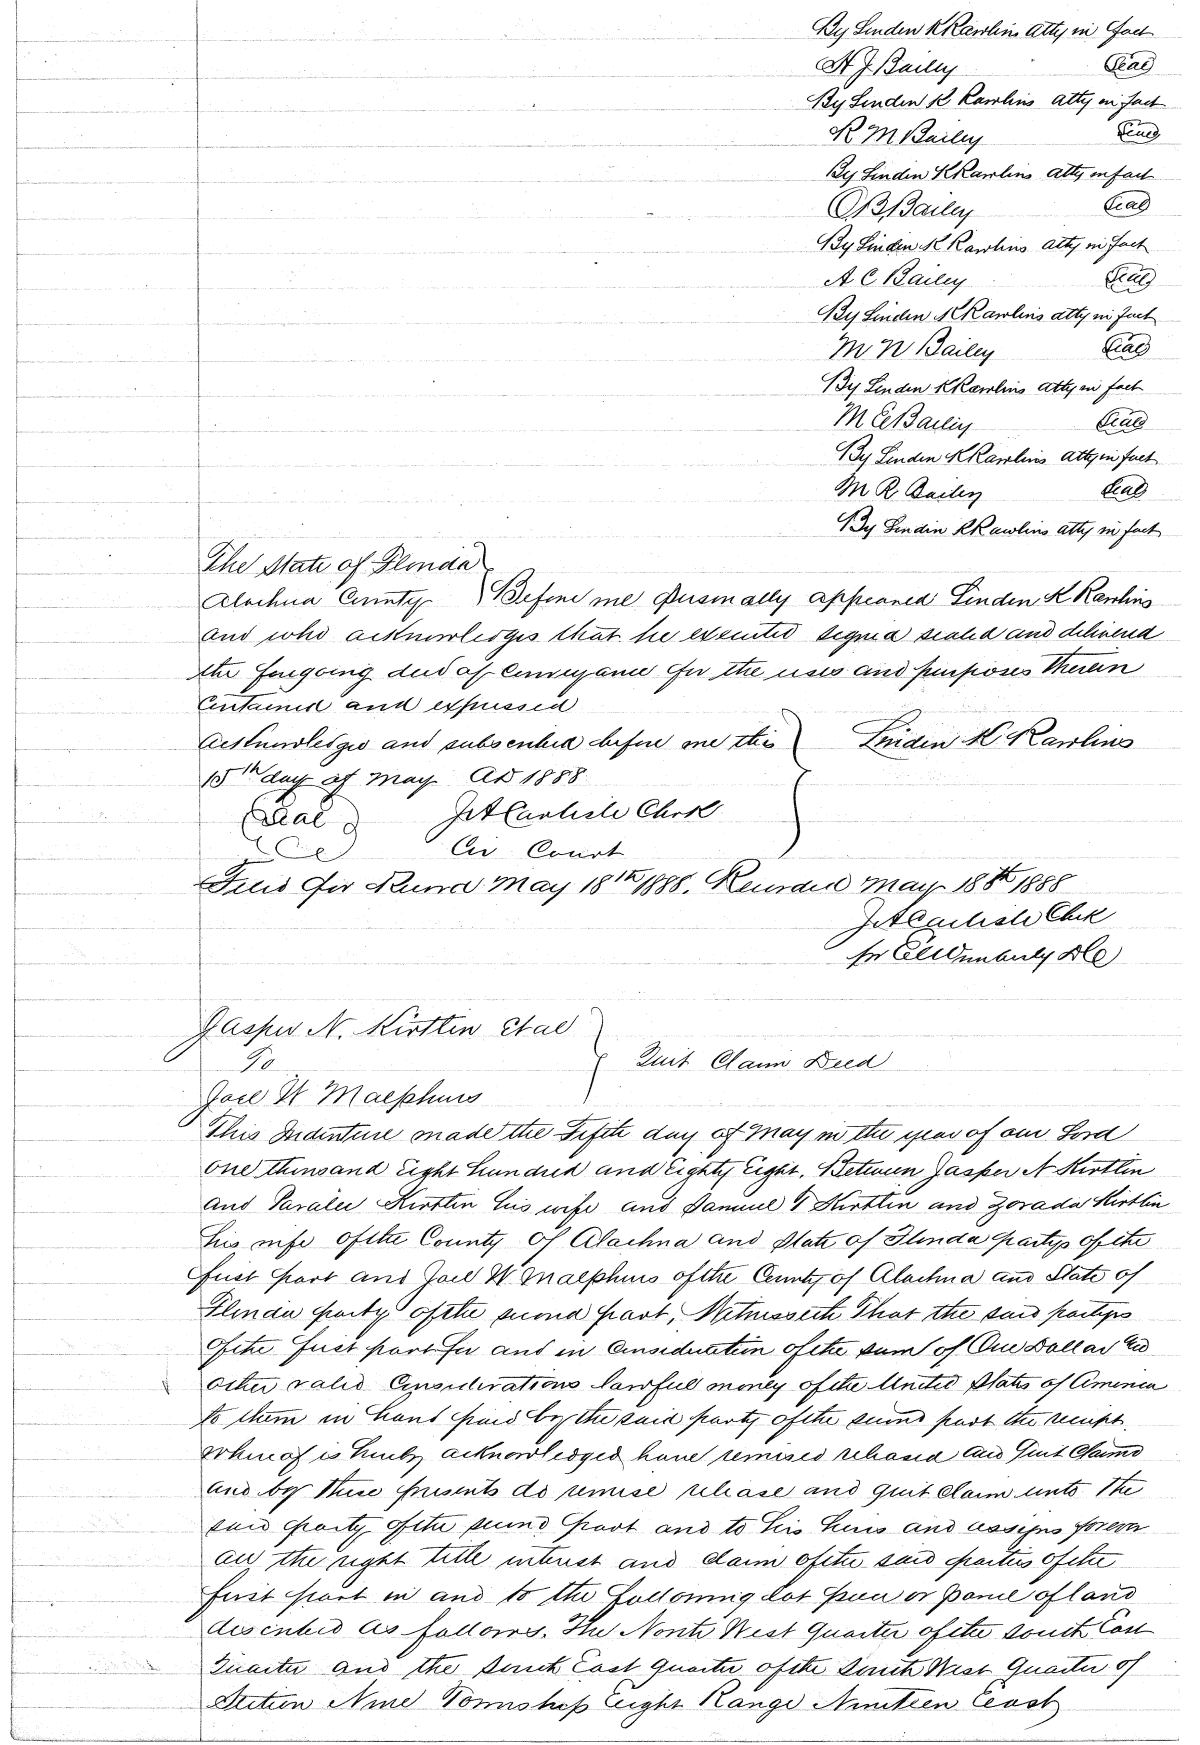 By Linden K Rawlins atty in fact
A J Bailey Seal
By Linden K Rawlins atty in fact
R M Bailey Seal
By Linden K Rawlins atty in fact
O B Bailey Seal
By Linden K Rawlins atty in fact
A C Bailey Seal
By Linden K Rawlins atty in fact
M N Bailey Seal
By Linden K Rawlins atty in fact
M E Bailey Seal
By Linden K Rawlins atty in fact
M R Bailey Seal
By Linden K Rawlins atty in fact
The State of Florida
Alachua County Before me personally appeared Linden K Rawlins
and who acknowledges that he executed signed sealed and delivered
the foregoing deed of Conveyance for the uses and purposes therein
Contained and expressed
Acknowledged and subscribed before me this Linden K Rawlins
15th day of May AD 1888
Seal J A Carlisle Clerk
Cir Court
Filed for Record May 18th 1888. Recorded May 18th 1888
J A Carlisle Clerk
per DC
Jasper N. Kirtlin et al
To Quit Claim Deed
Joel W Malphurs
This Indenture made the Fifth day of May in the year of our Lord
one thousand Eight hundred and Eighty Eight. Between Jasper N Kirtlin
and Paralee Kirtlin his wife and Samuel T Kirtlin and Zorada Kirtlin
his wife of the County of Alachua and State of Florida partys of the
first part and Joel W. Malphurs of the County of Alachua and State of
Florida party of the second part, Witnesseth That the said partys
of the first part for and in Consideration of the sum of One Dollar and
other valid Considerations lawful money of the United States of America
to them in hand paid by the said party of the second part the receipt
whereof is hereby acknowledged have remised released and Quit Claimed
and by these presents do remise release and quit claim unto the
said party of the second part and to his heirs and assigns forever
all the right title interest and claim of the said parties of the
first part in and to the following lot piece or parcel of land
described as follows. The North West Quarter of the South East
Quarter and the South East Quarter of the South West Quarter of
Section Nine Township Eight Range Nineteen East